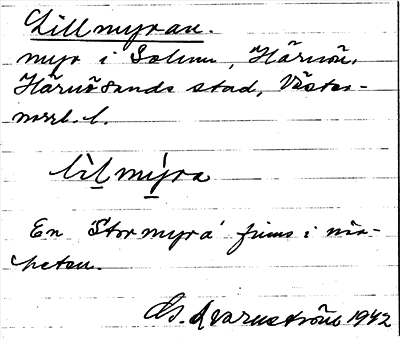 Lillmyran.
myr i Solum, Härnön,
Härnösands stad, Väster-
norrl. l.
lìlmýra
En Stormyra finns i när-
heten.
G. Qvarnström 1942